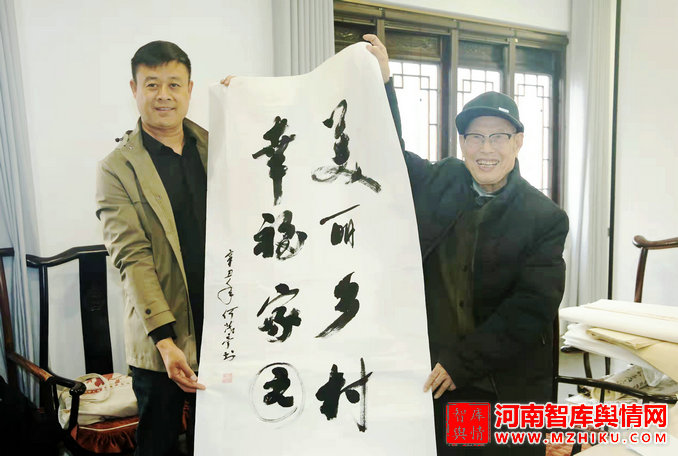 美丽乡村
幸福家园
辛丑年
智库
舆情
河南智库舆情网
WWW.MZHIKU.COM